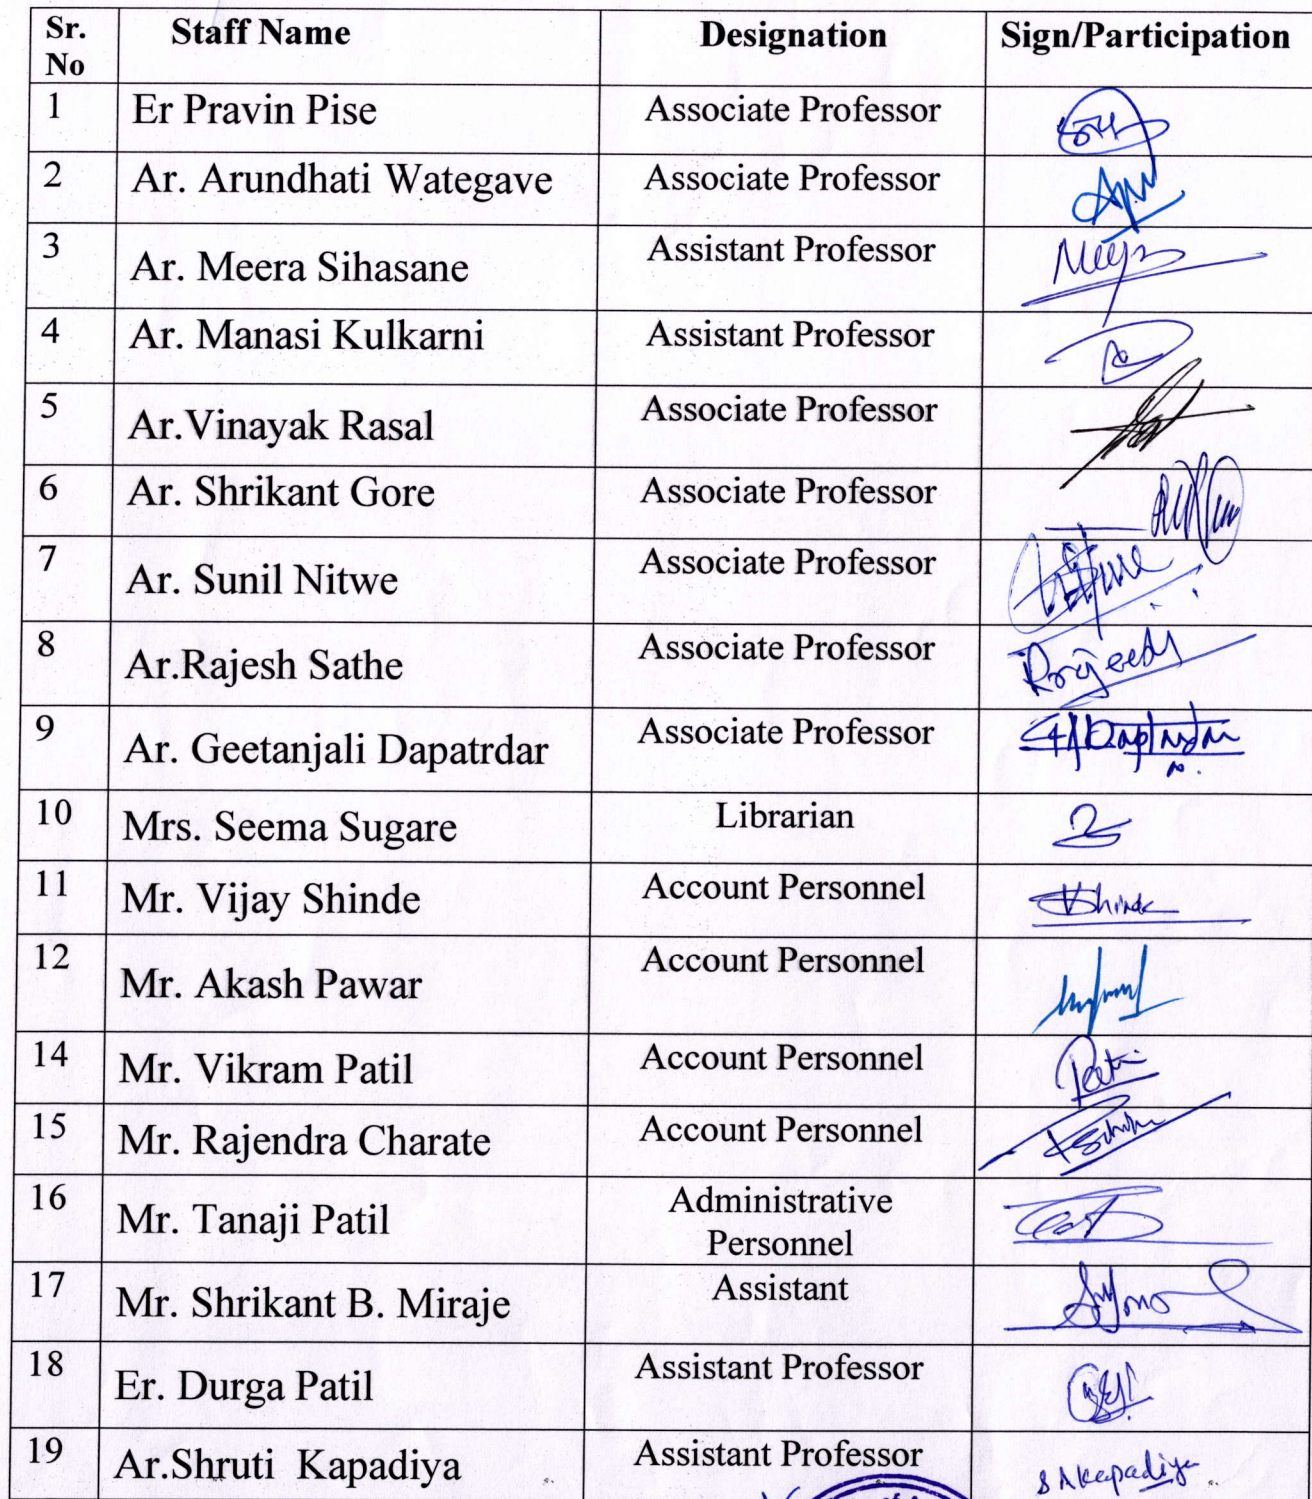 Sr. No Staff Name Designation Sign/Participation
1 Er Pravin Pise Associate Professor
2 Ar. Arundhati Wategave Associate Professor
3 Ar. Meera Sihasane Assistant Professor
4 Ar. Manasi Kulkarni Assistant Professor
5 Ar.Vinayak Rasal Associate Professor
6 Ar. Shrikant Gore Associate Professor
7 Ar. Sunil Nitwe Associate Professor
8 Ar.Rajesh Sathe Associate Professor
9 Ar. Geetanjali Dapatrdar Associate Professor
10 Mrs. Seema Sugare Librarian
11 Mr. Vijay Shinde Account Personnel
12 Mr. Akash Pawar Account Personnel
14 Mr. Vikram Patil Account Personnel
15 Mr. Rajendra Charate Account Personnel
16 Mr. Tanaji Patil Administrative Personnel
17 Mr. Shrikant B. Miraje Assistant
18 Er. Durga Patil Assistant Professor
19 Ar.Shruti Kapadiya Assistant Professor